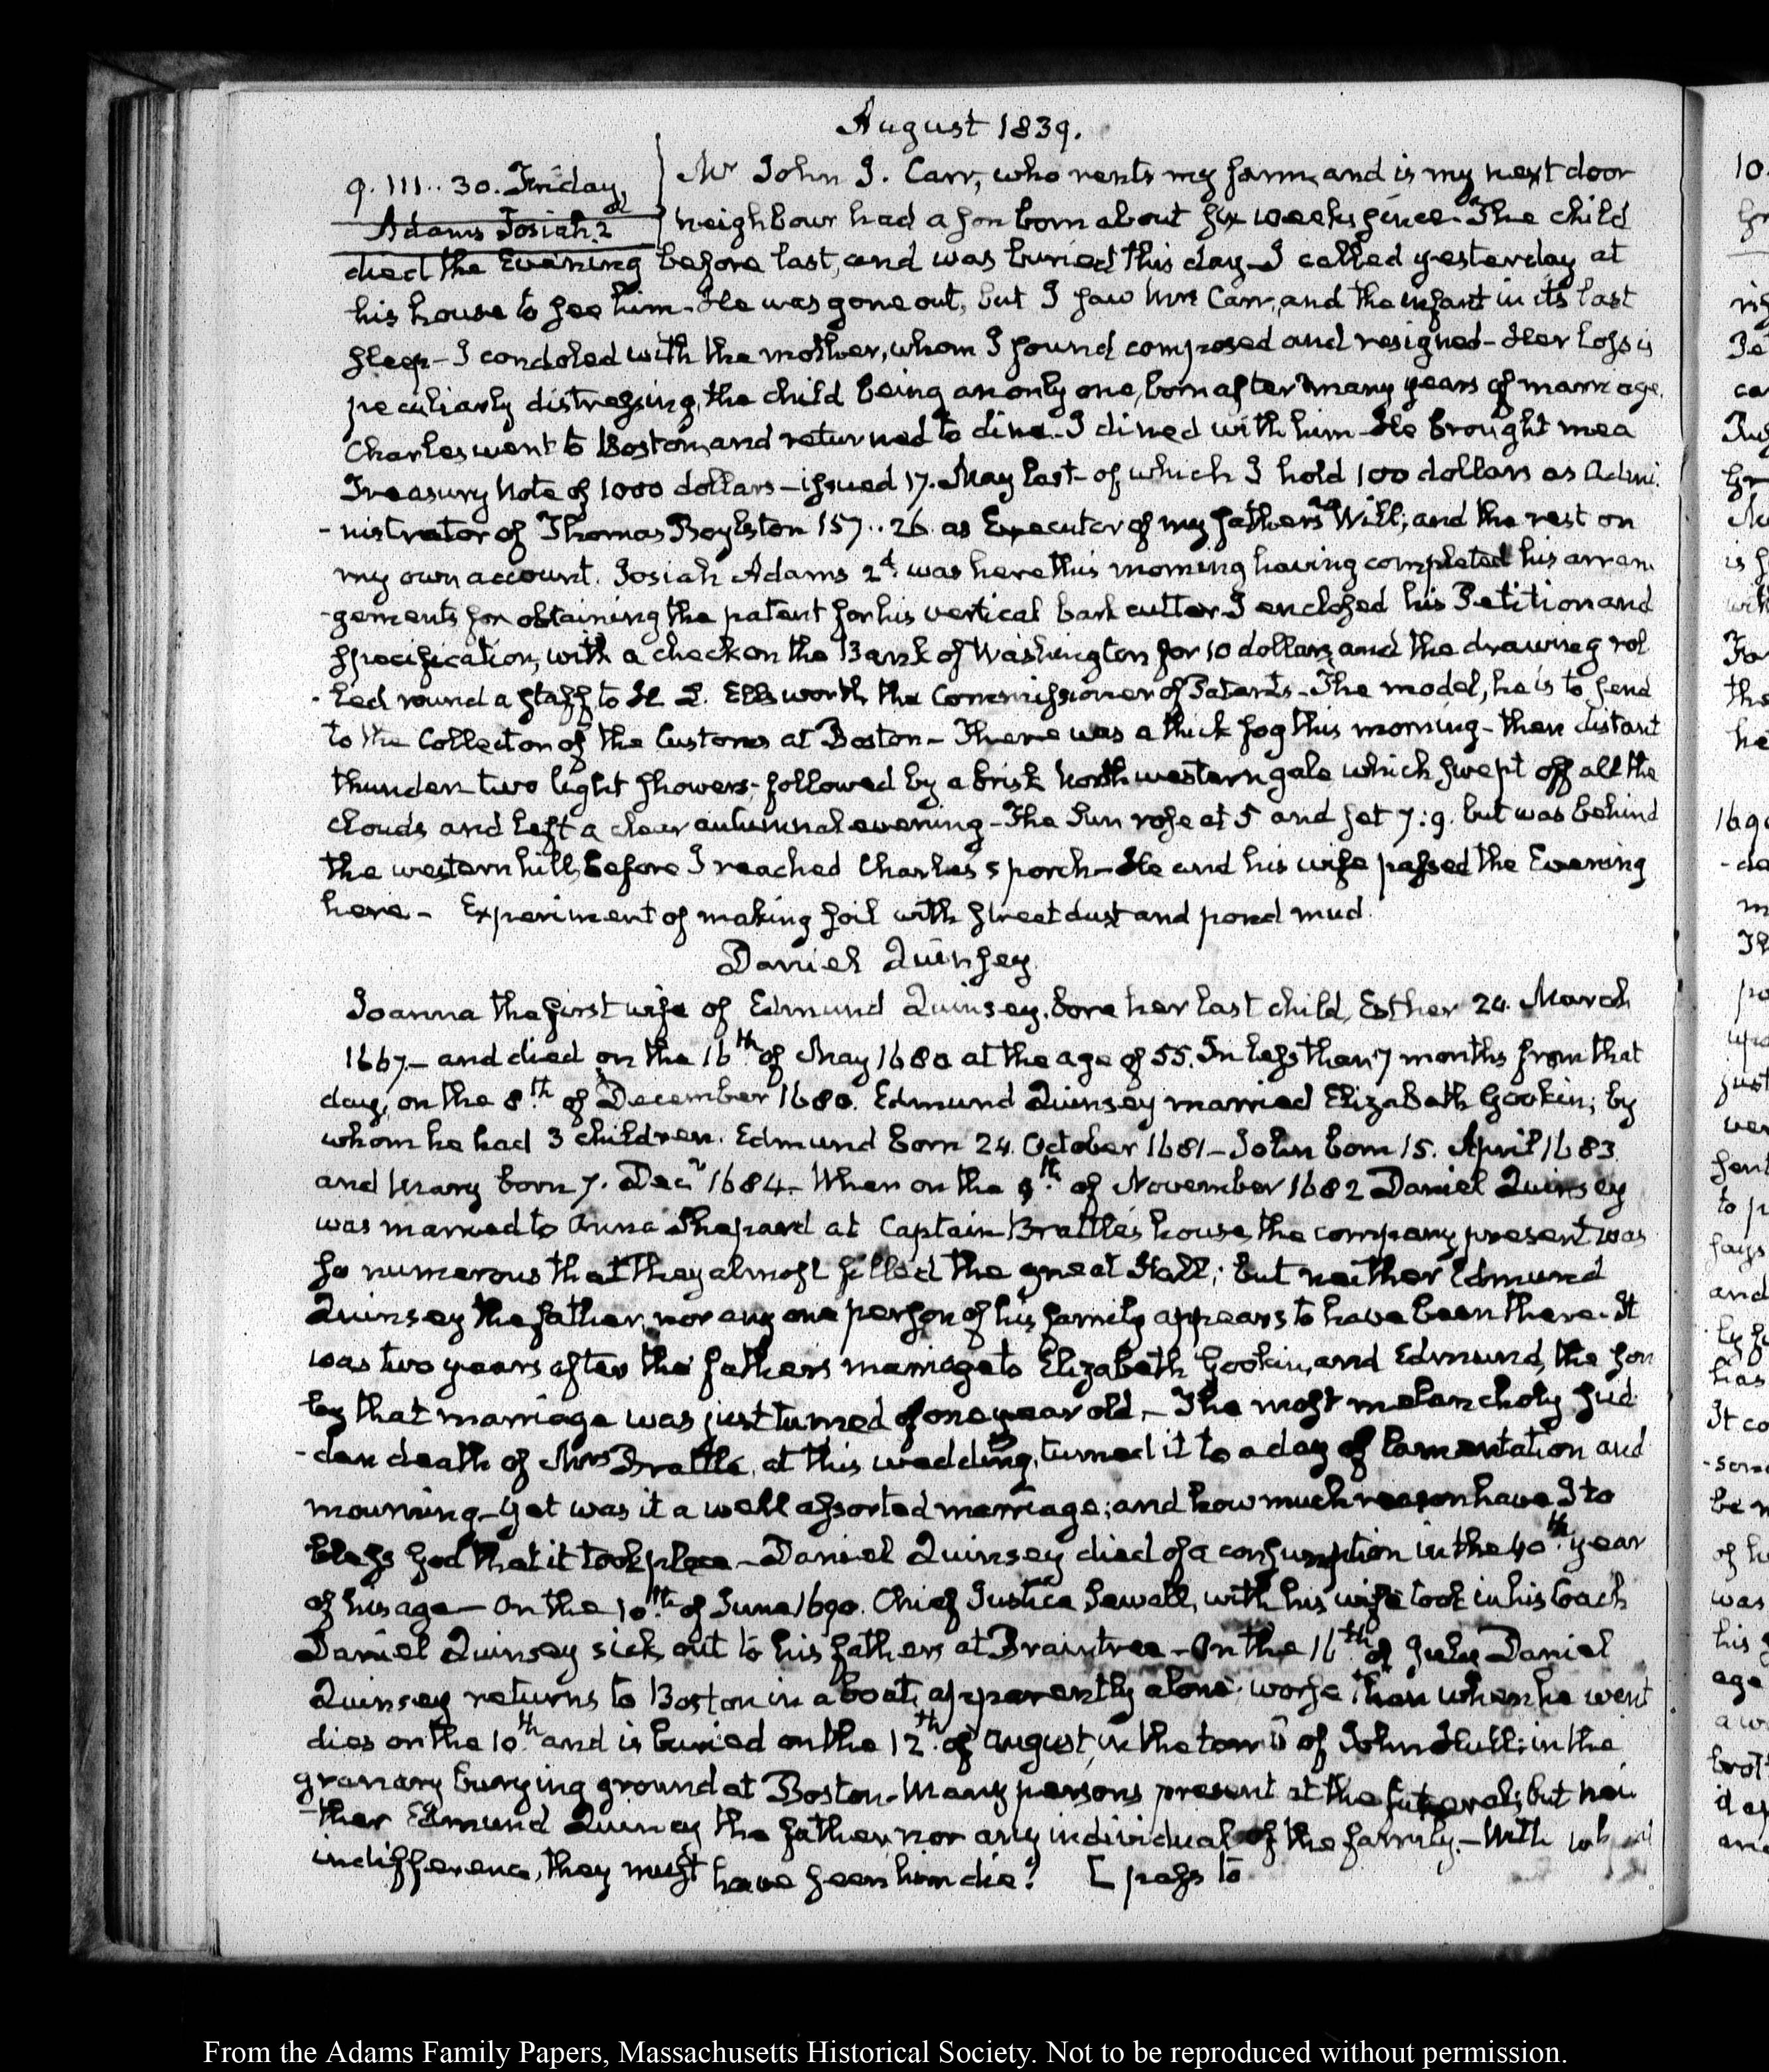 August 1839.
9. III.. 30. Friday.
Adams Josiah 2d
Mr John J. Carr, who rents my farm, and is my next door
neighbour had a son born about six weeks since. The child
died the Evening before last, and was buried this day. I called yesterday at
his house to see him. He was gone out, but I saw Mrs Carr, and the infant in its last
sleep- I condoled with the mother, whom I found composed and resigned- Her loss is
peculiarly distressing, the child being an only one, born after many years of marriage.
Charles went to Boston, and returned to dine. I dined with him- He brought me a
Treasury Note of 1000 dollars- issued 17. May last- of which I hold 100 dollars as Admi-
-nistrator of Thomas Boylston 157.. 26. as Executor of my father's Will; and the rest on
my own account. Josiah Adams 2d. was here this morning having completed his arran-
-gements for obtaining the patent for his vertical bark cutter. I enclosed his Petition and
specification, with a check on the Bank of Washington for 10 dollars, and the drawing rol-
-led round a staff to H. L. Ellsworth the Commissioner of Patents- The model, he is to send
to the Collector of the Customs at Boston- There was a thick fog this morning- then distant
thunder- two light showers- followed by a brisk north western gale which swept off all the
clouds and left a clear autumnal evening- The Sun rose at 5 and set 7:9. but was behind
the western hills before I reached Charles's porch- He and his wife passed the Evening
here- Experiment of making soil with street dust and pond mud.
Daniel Quinsey.
Joanna the first wife of Edmund Quinsey, bore her last child, Esther 24. March
1667.- and died on the 16th of May 1680 at the age of 55. In less than 7 months from that
day, on the 8th. of December 1680. Edmund Quinsey married Elizabeth Gookin; by
whom he had 3 children. Edmund born 24. October 1681- John born 15. April 1683.
and Mary born 7. Decr 1684- When on the 9th. of November 1682 Daniel Quinsey
was married to Anna Shepard at Captain Brattle's house, the company present was
so numerous that they almost filled the great Hall; but neither Edmund
Quinsey the father, nor any one person of his family appears to have been there. It
was two years after the fathers marriage to Elizabeth Gookin, and Edmund, the son
by that marriage was just turned of one year old,- The most melancholy sud-
-den death of Mrs Brattle, at this wedding, turned it to a day of lamentation and
mourning- Yet was it a well assorted marriage; and how much reason have I to
bless God that it took place- Daniel Quinsey died of a consumption in the 40th. year
of his age- On the 10th. of June 1690. Chief Justice Sewall, with his wife took in his Coach
Daniel Quinsey sick out to his fathers at Braintree- On the 16th. of July Daniel
Quinsey returns to Boston in a boat, apparently alone worse than when he went
dies on the 10th. and is buried on the 12th. of August, in the tomb of John Hull: in the
granary burying ground at Boston- Many persons present at the funeral; but nei-
-ther Edmund Quincy the father, nor any individual of the family.- With what
indifference, they must have seen him die! [pass to
From the Adams Family Papers, Massachusetts Historical Society. Not to be reproduced without permission.